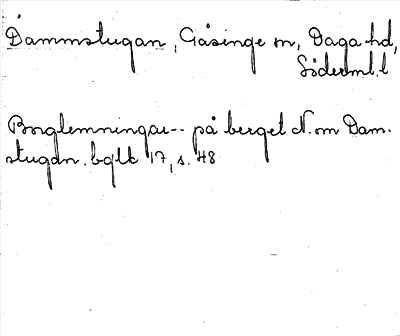 Dammstugan, Gåsinge sn, Daga hd,
Söderml. l
Borglämningar -- på berget N. om Dam-
stugan. bglk 17, s. 48